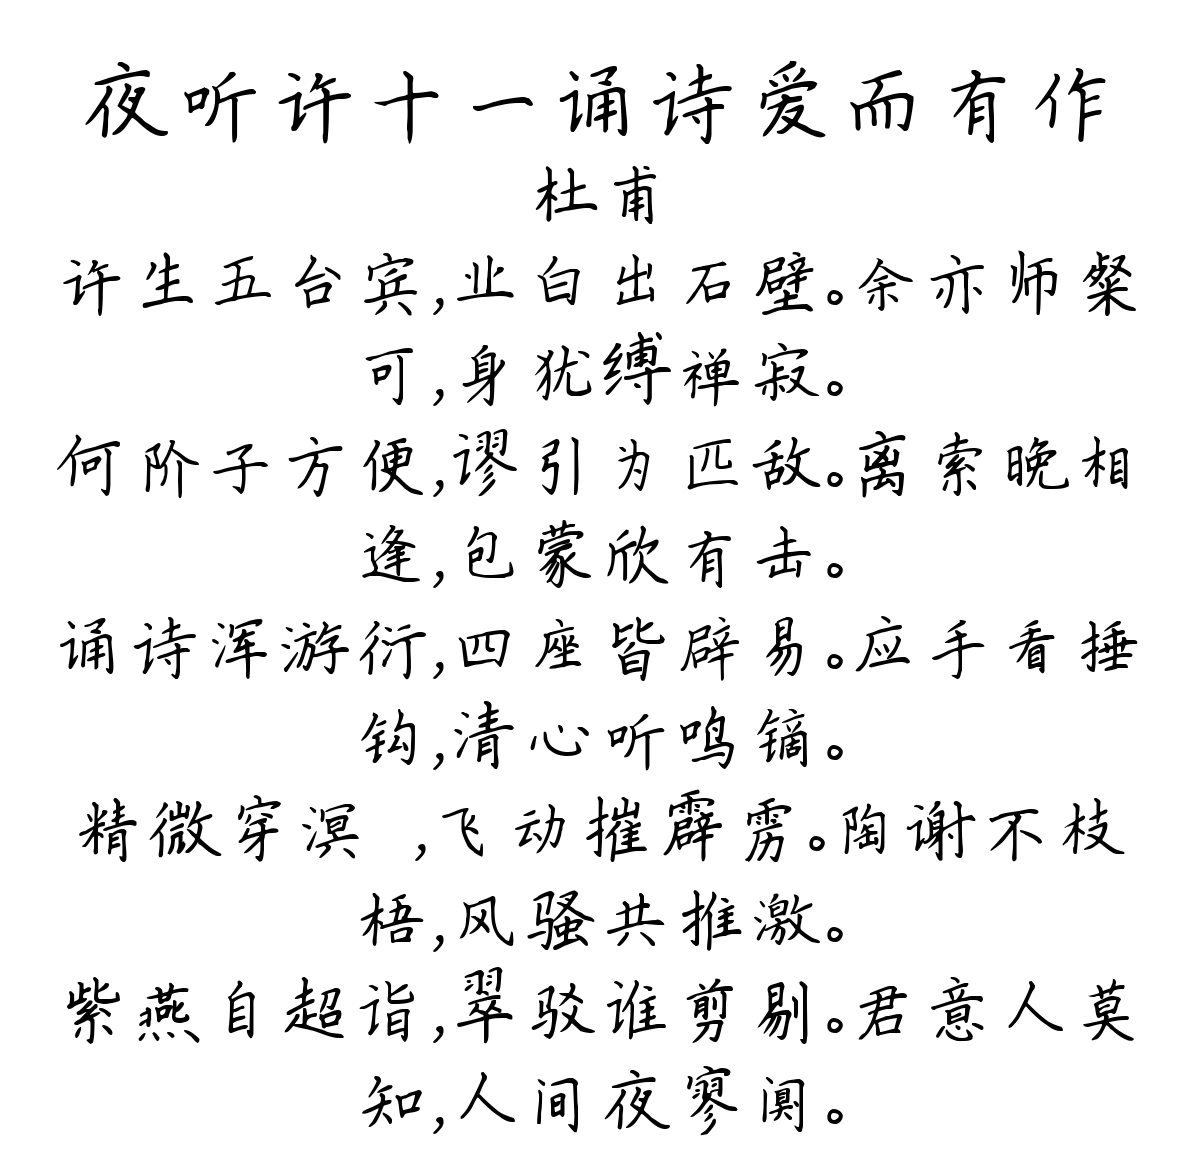 夜听许十一诵诗爱而有作
杜甫
许生五台宾,业白出石壁。余亦师粲
可,身犹缚禅寂。
何阶子方便,谬引为匹敌。离索晚相
逢,包蒙欣有击。
诵诗浑游衍,四座皆辟易。应手看捶
钩,清心听鸣镝。
精微穿溟 ,飞动摧霹雳。陶谢不枝
梧,风骚共推激。
紫燕自超诣,翠驳谁剪剔。君意人莫
知,人间夜寥阒。